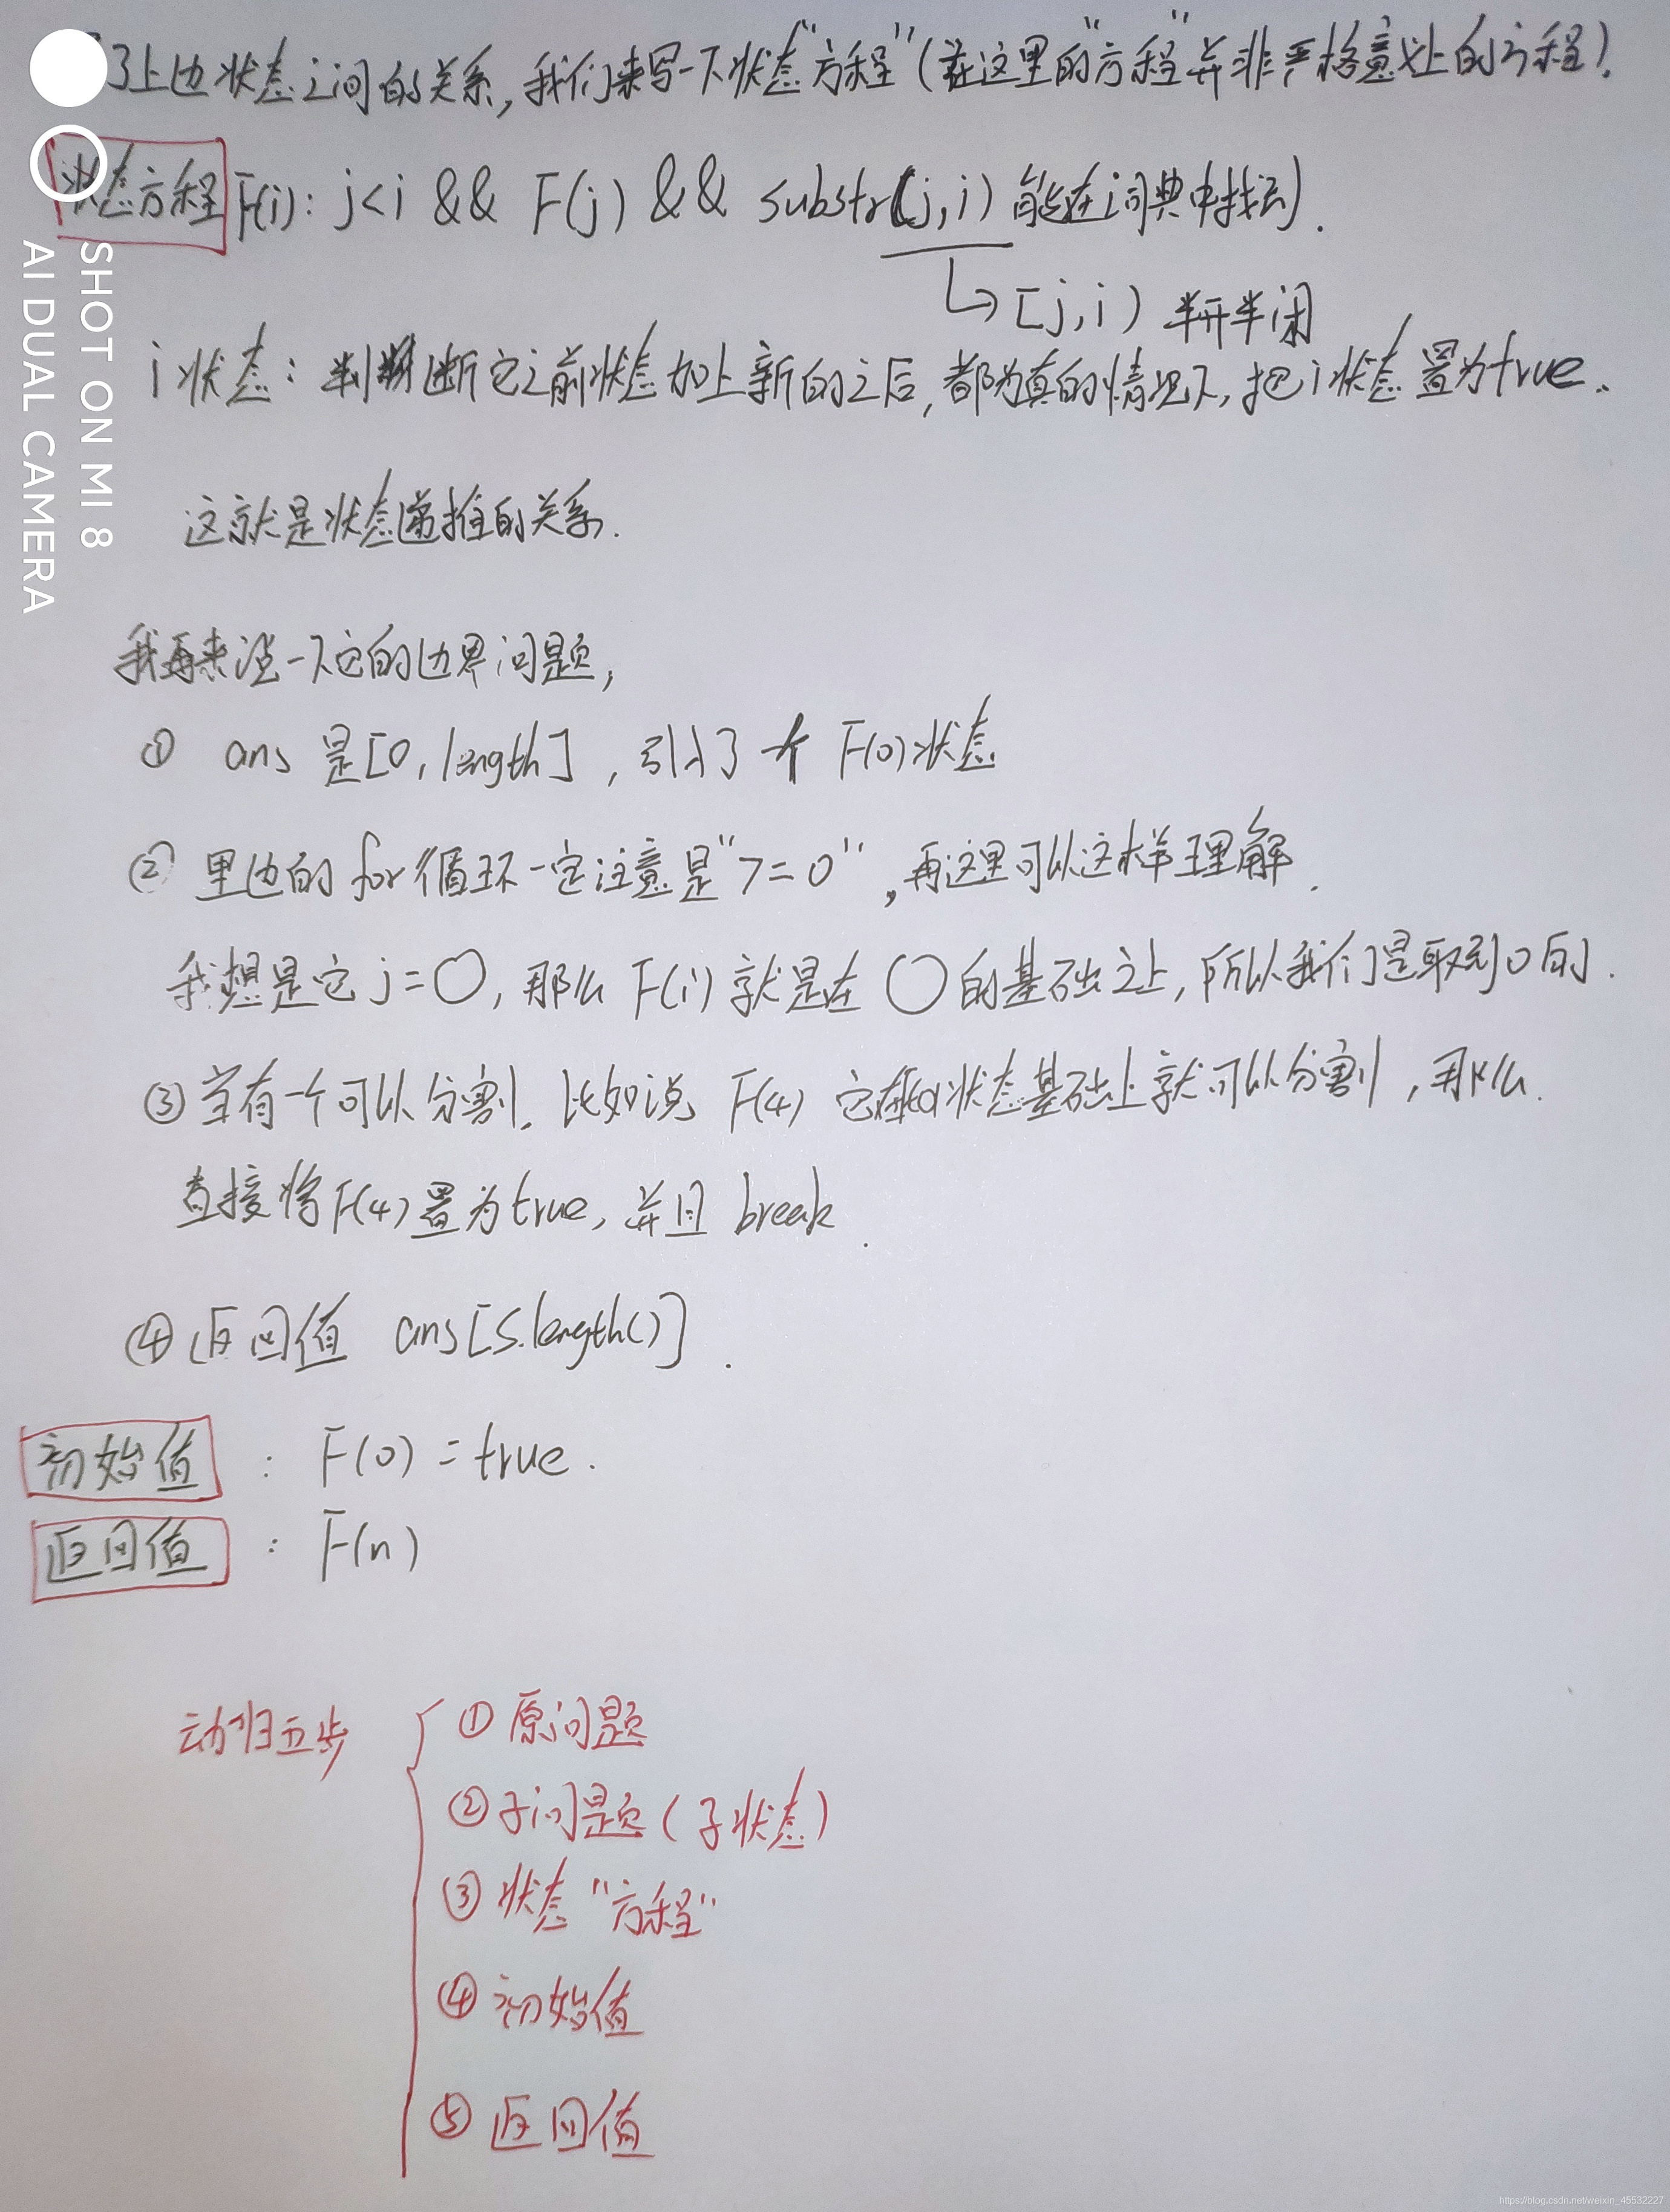 了上边状态之间的关系,我们来写一下状态"方程"(在这里的"方程"并非严格意义上的方程).
状态方程 F(i): j<i && F(j) && substr(j,i) 能在词典中找到.
↳ [j,i) 半开半闭
i状态: 判断它之前状态加上新的之后,都为真的情况下,把i状态置为true.
这就是状态递推的关系.
我再来说一下它的边界问题,
① ans 是[0,length],引入了一个 F(0)状态
② 里边的for循环一定注意是">=0",再这里可以这样理解.
我想是它j=0,那么 F(i)就是在 0的基础之上,所以我们是取到0的.
③当有一个可以分割,比如说 F(4) 它在状态基础上就可以分割,那么
直接将F(4)置为true,并且 break.
④返回值 ans[s.length()].
初始值 : F(0)=true.
返回值 : F(n)
动归五步
①原问题
②子问题(子状态)
③状态"方程"
④初始值
⑤返回值
SHOT ON MI 8
AI DUAL CAMERA
https://blog.csdn.net/weixin_45532227